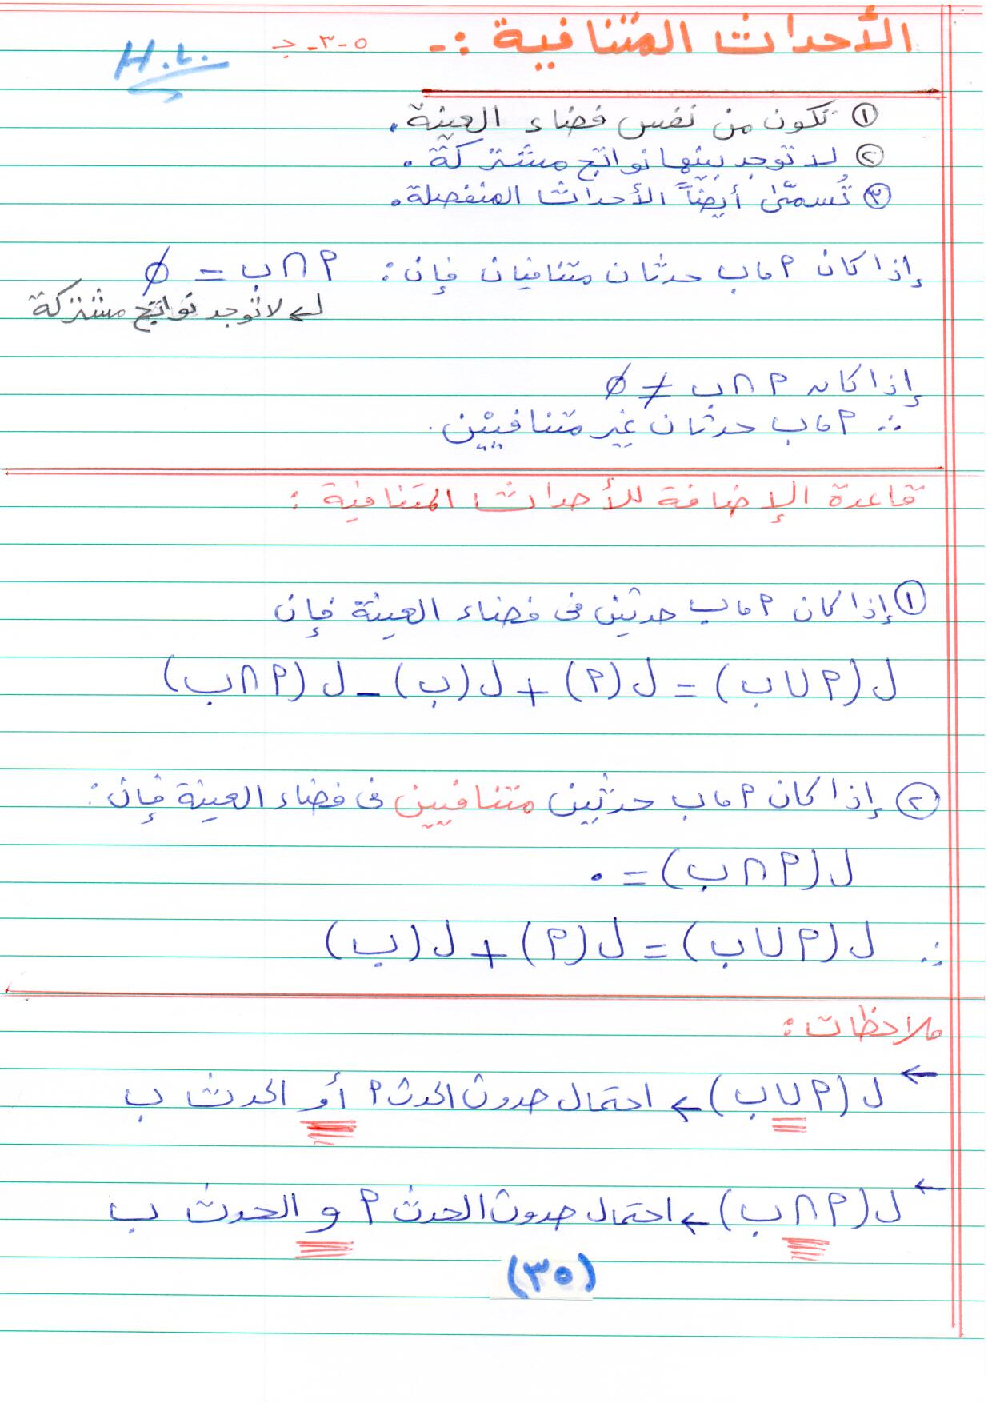 الأحداث المتنافية :- ٥-٣-ج
H.L.
① تكون من نفس فضاء العينة.
② لا توجد بينها نواتج مشتركة.
③ تُسمّى أيضاً الأحداث المنفصلة.
إذا كان م، ب حدثان متنافيان فإن: م ∩ ب = ∅
↲ لا توجد نواتج مشتركة
إذا كان م ∩ ب ≠ ∅
∴ م، ب حدثان غير متنافيين.
قاعدة الإضافة للأحداث المتنافية :
① إذا كان م، ب حدثين فى فضاء العينة فإن
ل (م ∪ ب) = ل (م) + ل (ب) - ل (م ∩ ب)
② إذا كان م، ب حدثين متنافيين فى فضاء العينة فإن:
ل (م ∩ ب) = ٠
∴ ل (م ∪ ب) = ل (م) + ل (ب)
ملاحظات :
← ل (م ∪ ب) ← احتمال حدوث الحدث م أو الحدث ب
← ل (م ∩ ب) ← احتمال حدوث الحدث م و الحدث ب
(٣٥)